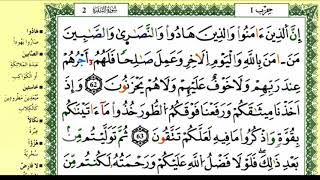 حزب 1
سُورَةُ البَقَرَةِ
2
إِنَّ ٱلَّذِينَ ءَامَنُوا۟ وَٱلَّذِينَ هَادُوا۟ وَٱلنَّصَٰرَىٰ وَٱلصَّٰبِينَ
مَنَ ـ امَنَ بِاللَّهِ وَالْيَوْمِ الَاخِرِ وَعَمِلَ صَٰلِحًا فَلَهُمُۥٓ أَجْرُهُمْ
عِندَ رَبِّهِمْ وَلَا خَوْفٌ عَلَيْهِمْ وَلَا هُمْ يَحْزَنُونَ 62 وَإِذَ
اَخَذْنَا مِيثَٰقَكُمْ وَرَفَعْنَا فَوْقَكُمُ الطُّورَ خُذُوا۟ مَآ ءَاتَيْنَٰكُم
بِقُوَّةٍ وَاذْكُرُوا۟ مَا فِيهِ لَعَلَّكُمْ تَتَّقُونَ 63 ثُمَّ تَوَلَّيْتُم مِّنۢ
بَعْدِ ذَٰلِكَ فَلَوْلَا فَضْلُ اللَّهِ عَلَيْكُمْ وَرَحْمَتُهُۥ لَكُنتُم مِّنَ
هَادُوا
الصَّابِينَ
خَاسِئِينَ
نَكَالًا
هُزُؤًا
سُخْرِيَّة